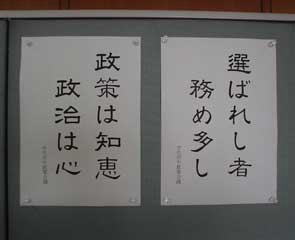 選ばれし者
務め多し
政策は知恵
政治は心